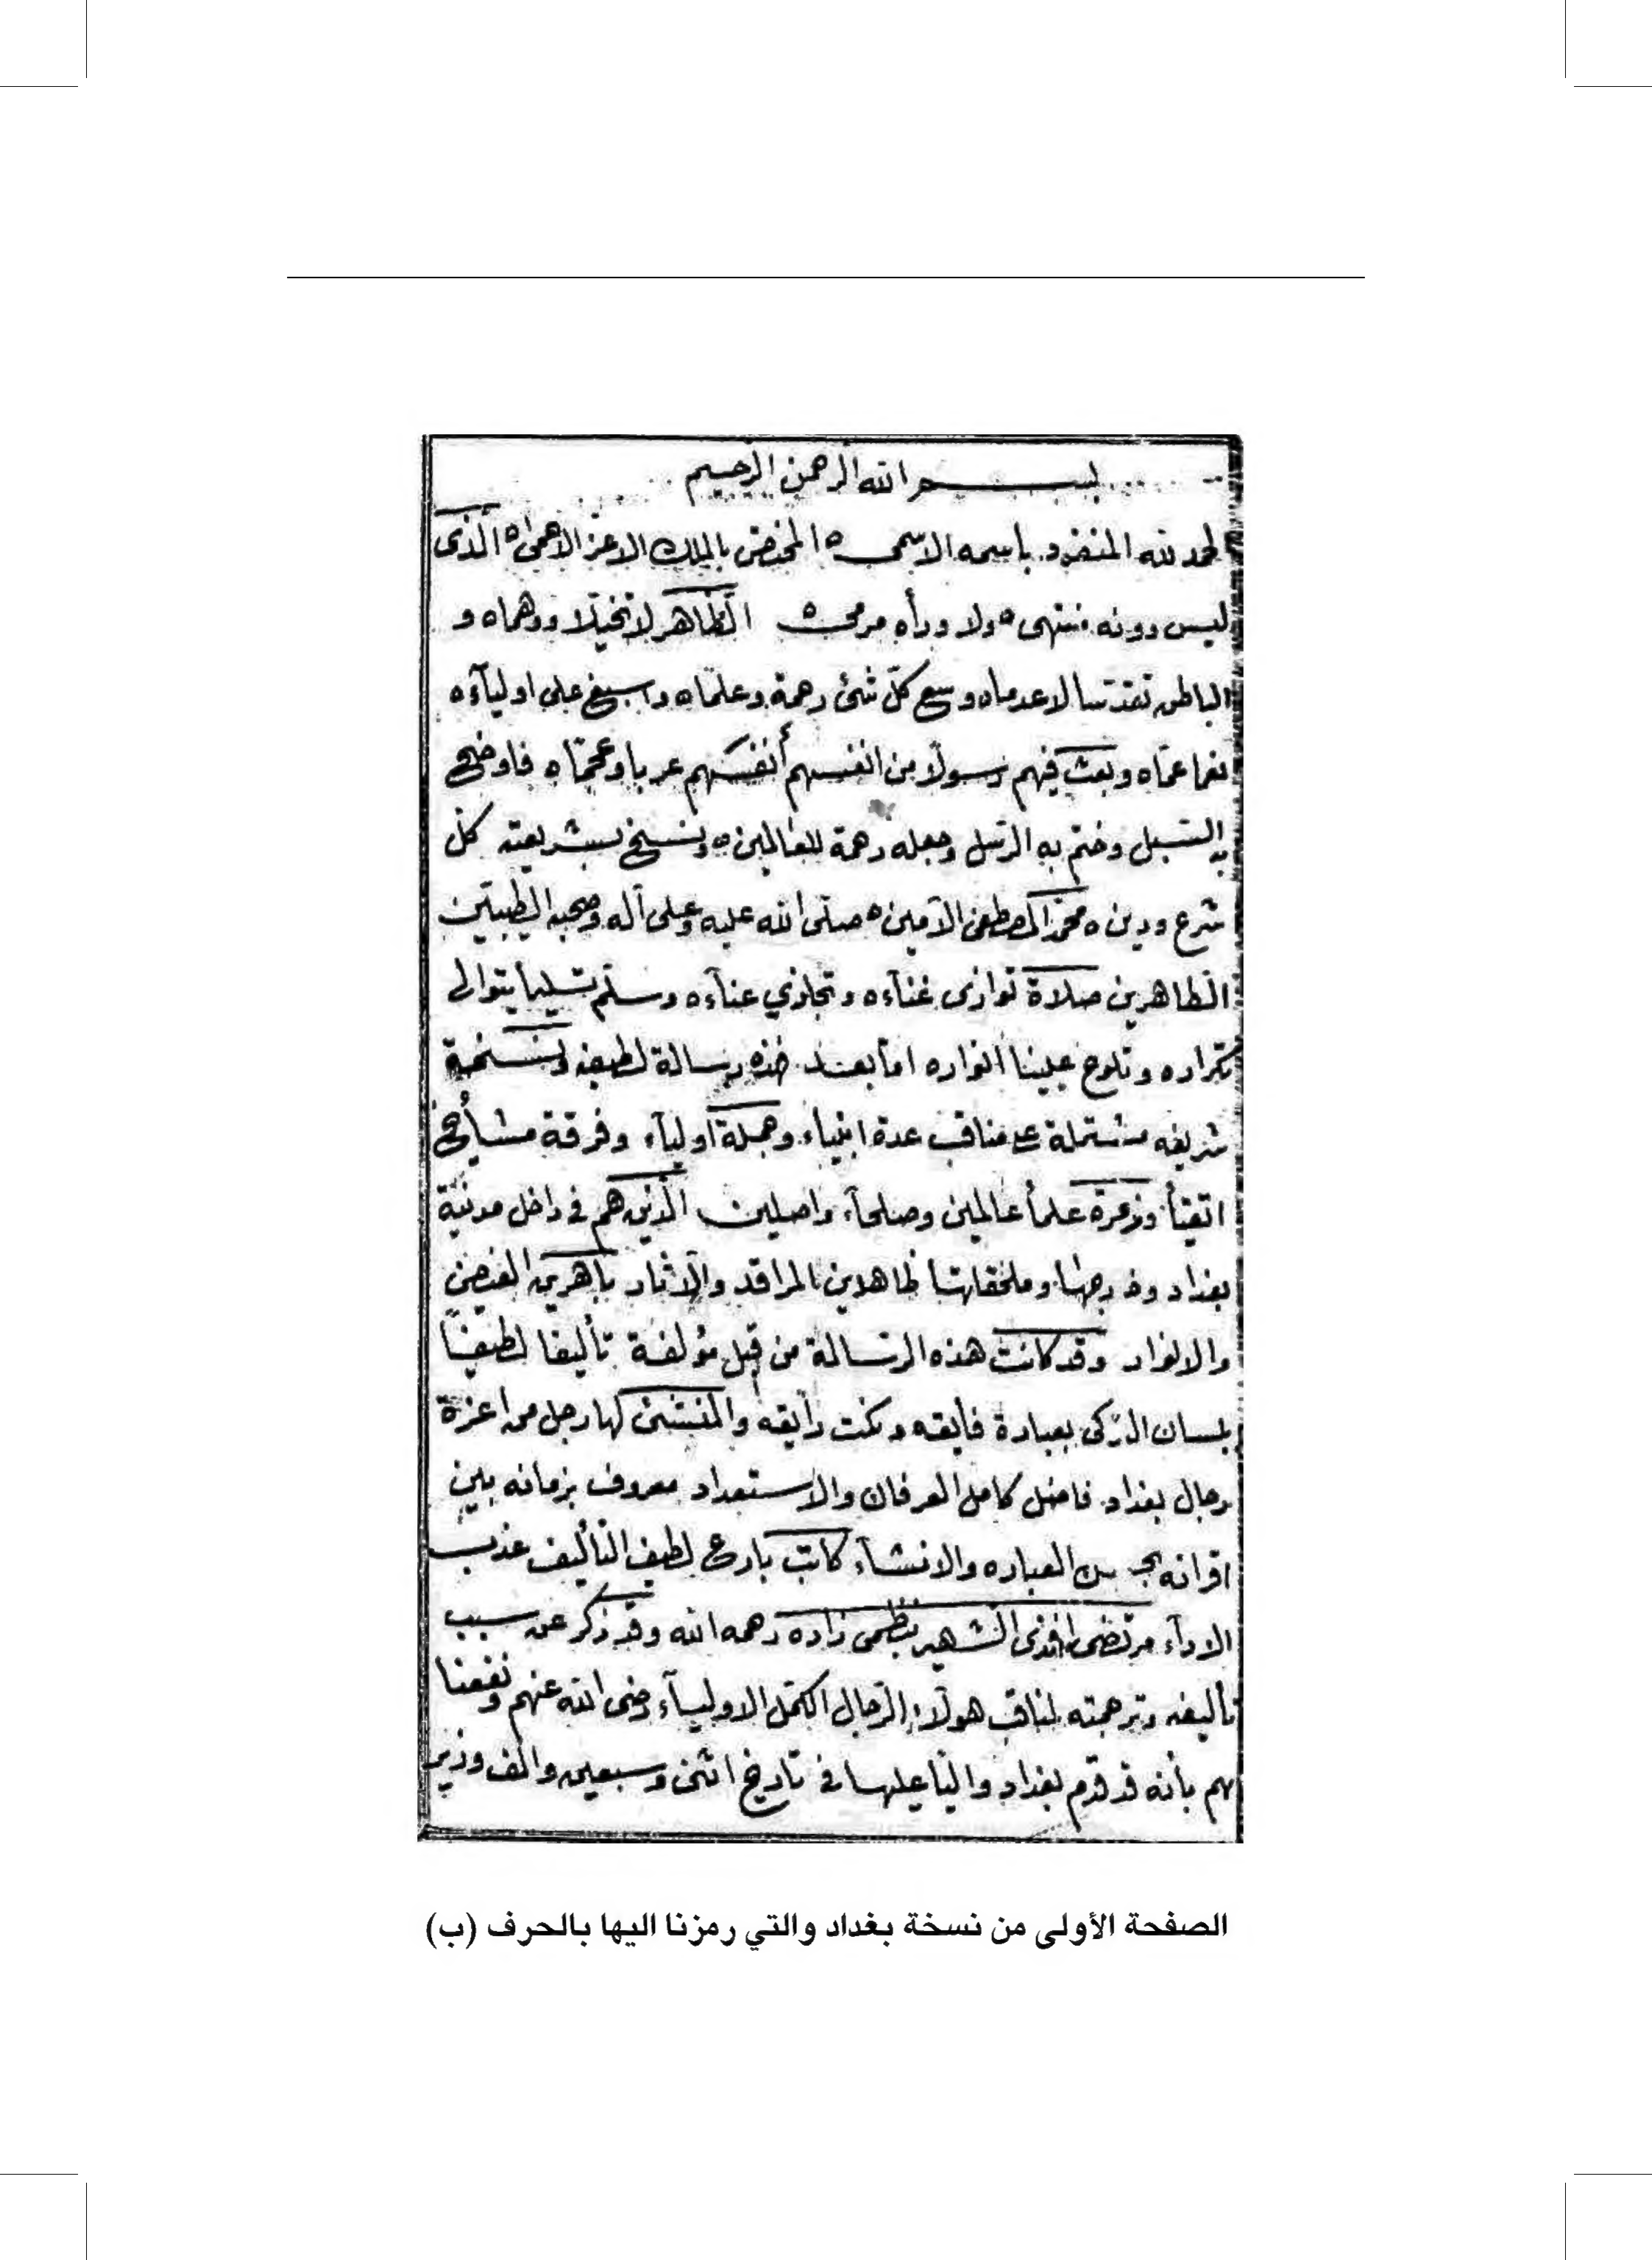 بسم الله الرحمن الرحيم
الحمد لله المنفرد باسمه الاسمى ه المختص بالملك الاعز الاحمى ه الذى
ليس دونه منتهى ه ولا وراه مرمى ه الظاهر لا تخيلا ووهماه و
الباطن تقدسا لا عدماه وسع كل شئ رحمة وعلماه واسبغ على اوليآءه
نعما عماه وبعث فيهم رسولا من انفسهم أنفسهم عربا وعجماه فاوضح
به السبيل وختم به الرسل وجعله رحمة للعالمين ه ونسخ بشريعته كل
شرع ودين ه محمد المصطفى الآمين ه صلى الله عليه وعلى آله وصحبه الطيبين
الطاهرين صلاة توازى غنآءه وتجازي عنآءه وسلم تسليما يتوالى
تكراره وتلوح علينا انواره اما بعد فهذه رسالة لطيفه ونسخة
شريفه مشتملة على مناقب عدة انبياء وجملة اوليآء وفرقة مشايخ
اتقيأ وزمرة علمأ عالمين وصلحآء واصلين الذين هم فى داخل مدينة
بغداد وخارجها وملحقاتها ظاهرين المراقد والاثار باهرين الفيض
والانوار وقد كانت هذه الرسالة من قبل مؤلفة تأليفا لطيفاً
بلسان التركى بعبارة فايقه ونكت رايقه والمنشئ لها رجل من اعزة
رجال بغداد فاضل كامل العرفان والاستعداد معروف بزمانه بين
اقرانه بحسن العباره والانشآء كاتب بارع لطيف التأليف عذب
الادآء مرتضى افندى الشهير بنظمى زاده رحمه الله وقد ذكر عن سبب
تأليفه وترجمته لمناقب هولآء الرجال الكمل الاوليآء رضى الله عنهم ونفعنا
بهم بأنه قد قدم بغداد واليا عليها فى تاريخ اثنى وسبعين والف وزير
الصفحة الأولى من نسخة بغداد والتي رمزنا اليها بالحرف (ب)